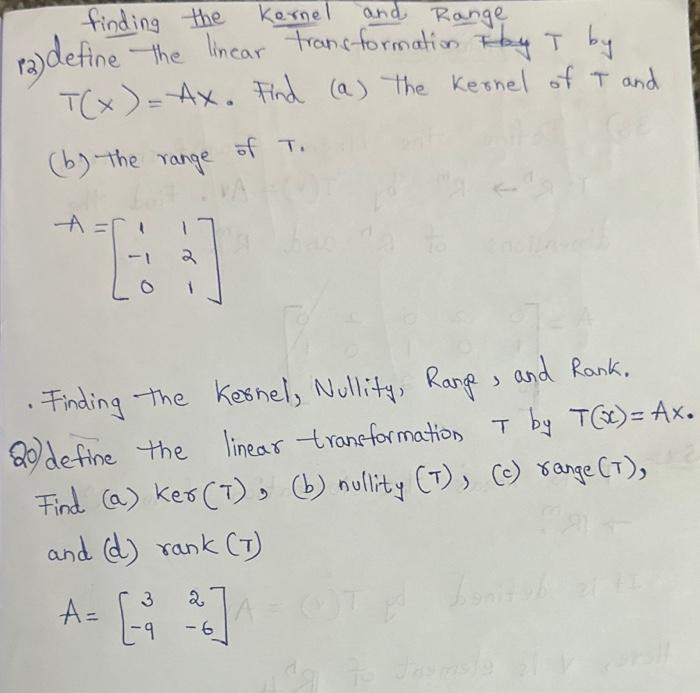 finding the Kernel and Range
12) define the linear transformation by T by
T(x) = Ax. Find (a) the Kernel of T and
(b) the range of T.
A = [ 1 1
-1 2
0 1 ]
. Finding the Kernel, Nullity, Range, and Rank.
20) define the linear transformation T by T(x) = Ax.
Find (a) Ker(T), (b) nullity (T), (c) range (T),
and (d) rank (T)
A = [ 3 2
-9 -6 ]